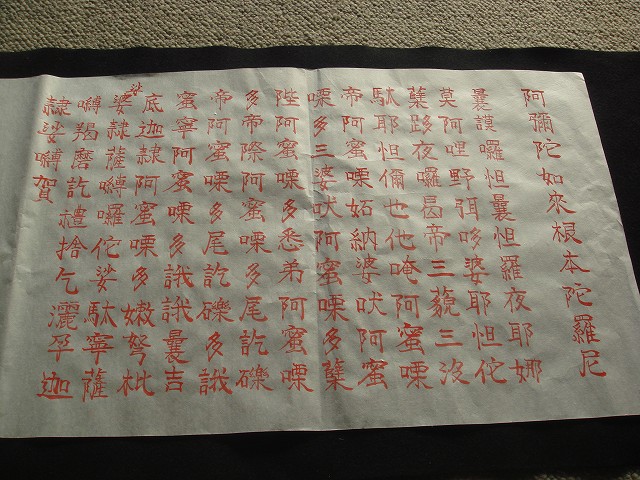 阿彌陀如來根本陀羅尼
曩謨囉怛曩怛羅夜耶娜
莫阿哩野弭哆婆耶怛佗
蘖跢夜囉曷帝三藐三沒
駄耶怛儞也他唵阿蜜㗚
帝阿蜜㗚妬納婆吠阿蜜
㗚多三婆吠阿蜜㗚多蘖
陛阿蜜㗚多悉弟阿蜜㗚
多帝際阿蜜㗚多尾訖礫
帝阿蜜㗚多尾訖礫多誐
蜜寧阿蜜㗚多誐誐曩吉
底迦隷阿蜜㗚多嫩弩枇
婆隷薩嚩囉佗娑駄寧薩
嚩羯磨訖禮捨乞灑孕迦
隷娑嚩賀